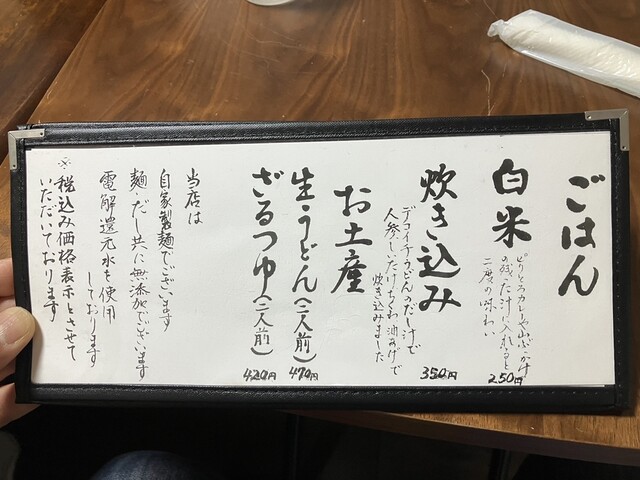 ごはん
白米
ピリとろカレーや山かけ
の残った汁に入れると
二度の味わい
250円
炊き込み
デコイチうどんのだし汁で
人参、しいたけちくわ油あげで
炊き込みました
350円
お土産
生うどん(二人前)
470円
ざるつゆ(二人前)
420円
当店は
自家製麺でございます
麺・だし共に無添加でございます
電解還元水を使用
しております
※税込み価格表示とさせて
いただいております